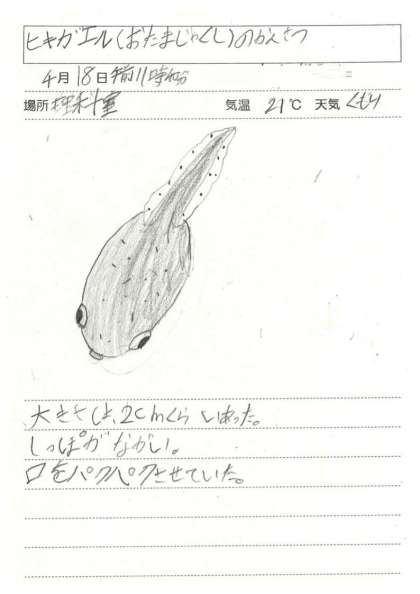 ヒキガエル(おたまじゃくし)のかんさつ
4月18日午前11時40分
場所 理科室 気温 21℃ 天気 くもり
大きさは、2cmくらいあった。
しっぽがながい。
口をパクパクさせていた。